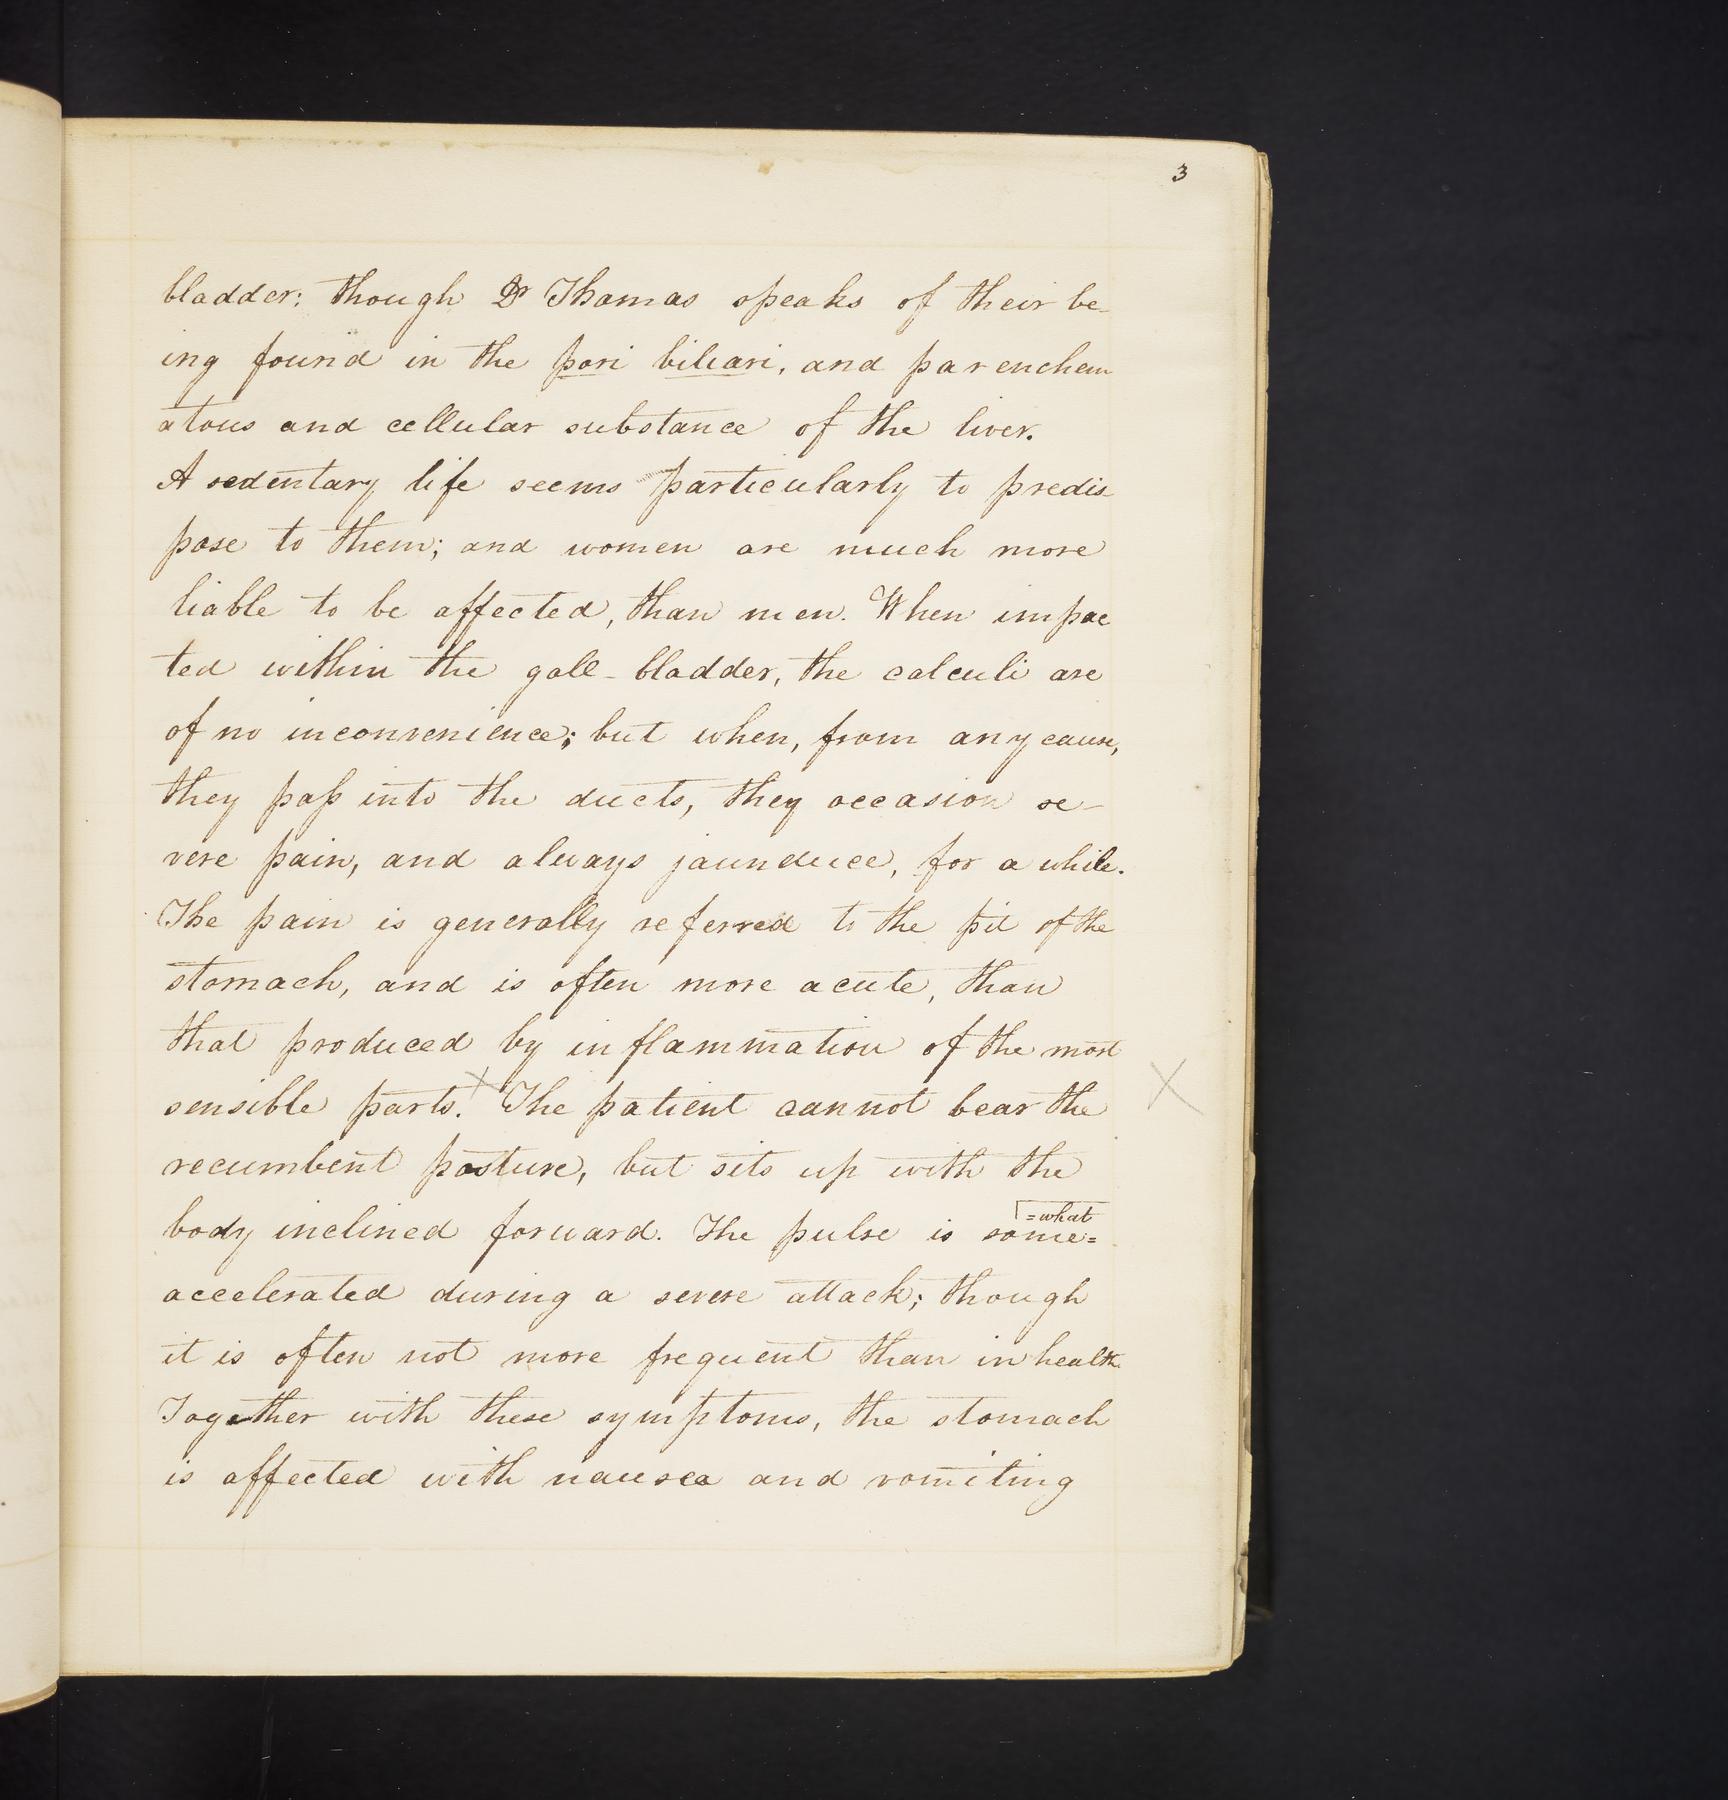 3
bladder: though Dr Thomas speaks of their be-
ing found in the pori biliari, and parenchem
atous and cellular substance of the liver.
A sedentary life seems particularly to predis-
pose to them; and women are much more
liable to be affected, than men. When impac
ted within the gall-bladder, the calculi are
of no inconvenience; but when, from any cause,
they paſs into the ducts, they occasion se-
vere pain, and always jaunduce, for a while.
The pain is generally referred to the pit of the
stomach, and is often more acute, than
that produced by inflammation of the most
sensible parts. X The patient cannot bear the X
recumbent posture, but sits up with the
=what
body inclined forward. The pulse is some=
accelerated during a severe attack; though
it is often not more frequent than in health.
Together with these symptoms, the stomach
is affected with nausea and vomiting